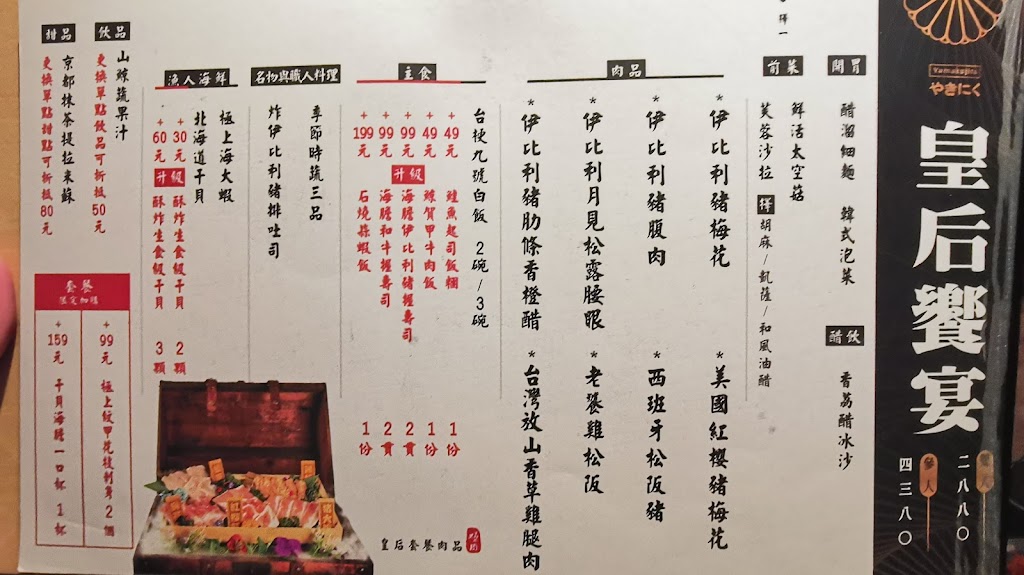 Yamakujira
やきにく
皇后饗宴
二八八〇
參人
四三八〇
開胃
醋溜細麵
韓式泡菜
醋飲
香荔醋冰沙
前菜
鮮活太空菇
芙蓉沙拉 擇 胡麻/凱薩/和風油醋
肉品
*伊比利豬梅花
*美國紅櫻豬梅花
*伊比利豬腹肉
*西班牙松阪豬
*伊比利月見松露腰眼
*老饕雞松阪
*伊比利豬肋條香橙醋
*台灣放山香草雞腿肉
主食
台梗九號白飯 2碗/3碗
+49元 鮭魚起司飯糰 1份
+49元 鯨賀甲牛肉飯 1份
+99元 升級 海膽伊比利豬握壽司 2貫
+99元 海膽和牛握壽司 2貫
+199元 石燒蝦飯 1份
名物與職人料理
季節時蔬三品
炸伊比利豬排吐司
漁人海鮮
極上海大蝦
北海道干貝
+30元 升級 酥炸生食級干貝 2顆
+60元 酥炸生食級干貝 3顆
飲品
山嵐蔬果汁
更換單點飲品可折抵50元
甜品
京都抹茶提拉米蘇
更換單點甜點可折抵80元
套餐
限定加購
+99元 極上紋甲花枝刺身2個
+159元 干貝海膽一口杯 1杯
皇后套餐肉品